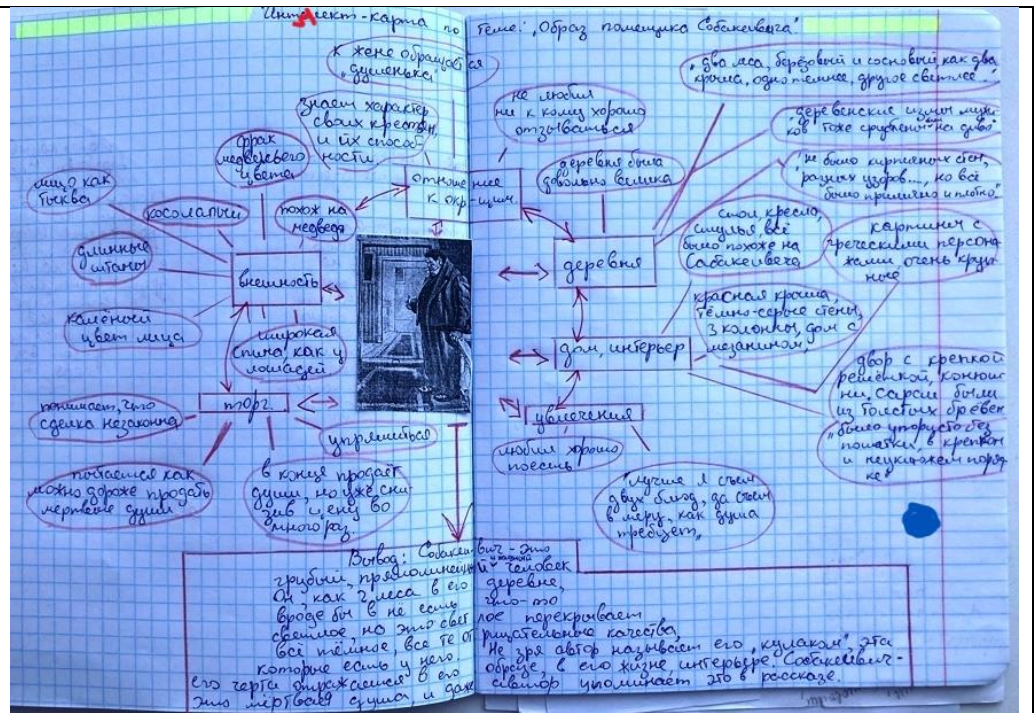 Интеллект-карта по теме: „Образ помещика Собакевича"
к жене обращается
„душенька"
знает характер
своих крестьян,
и их способ-
ности
фрак
медвежьего
цвета
лицо как
тыква
косолапый
похож на
медведя
длинные
штаны
внешность
калёный
цвет лица
широкая
спина, как у
лошадей
отношение
к окр-щим
не любил
ни к кому хорошо
отзываться
деревня была
довольно велика
„два леса, берёзовый и сосновый, как два
крыла, одно темнее, другое светлее."
деревенские избы мужи-
ков тоже срублены на диво
"не было кирпичных стен,
разных узоров..., но всё
было прилично и плотно"
деревня
стол, кресло,
стулья, всё
было похоже на
Собакевича
картины с
греческими персона-
жами, очень круп-
ные
красная крыша,
тёмно-серые стены,
3 колонны, дом с
мезанином,
дом, интерьер
двор с крепкой
решёткой, конюш-
ни, сараи были
из толстых брёвен
„было упористо без
пошатки, в крепком
и неуклюжем поряд-
ке"
увлечения
любил хорошо
поесть
"лучше я съем
двух блюд, да съем
в меру, как душа
требует"
торг
понимает, что
сделка незаконна
упрямиться
пытается как
можно дороже продать
мертвые души
в конце продаёт
души, но уже сни-
зив цену во
много раз.
Вывод: Собакевич - это
грубый, прямолинейный человек
Он, как 2 леса в его деревне,
вроде бы в нё есть что-то
светлое, но это светлое перекрывает
всё тёмное, все те отрицательные качества,
которые есть у него. Не зря автор называет его „кулаком", эта
его черта отражается в его образе, в его жизне интерьере. Собакевич-
это мёртвая душа, и даже автор упоминает это в рассказе.